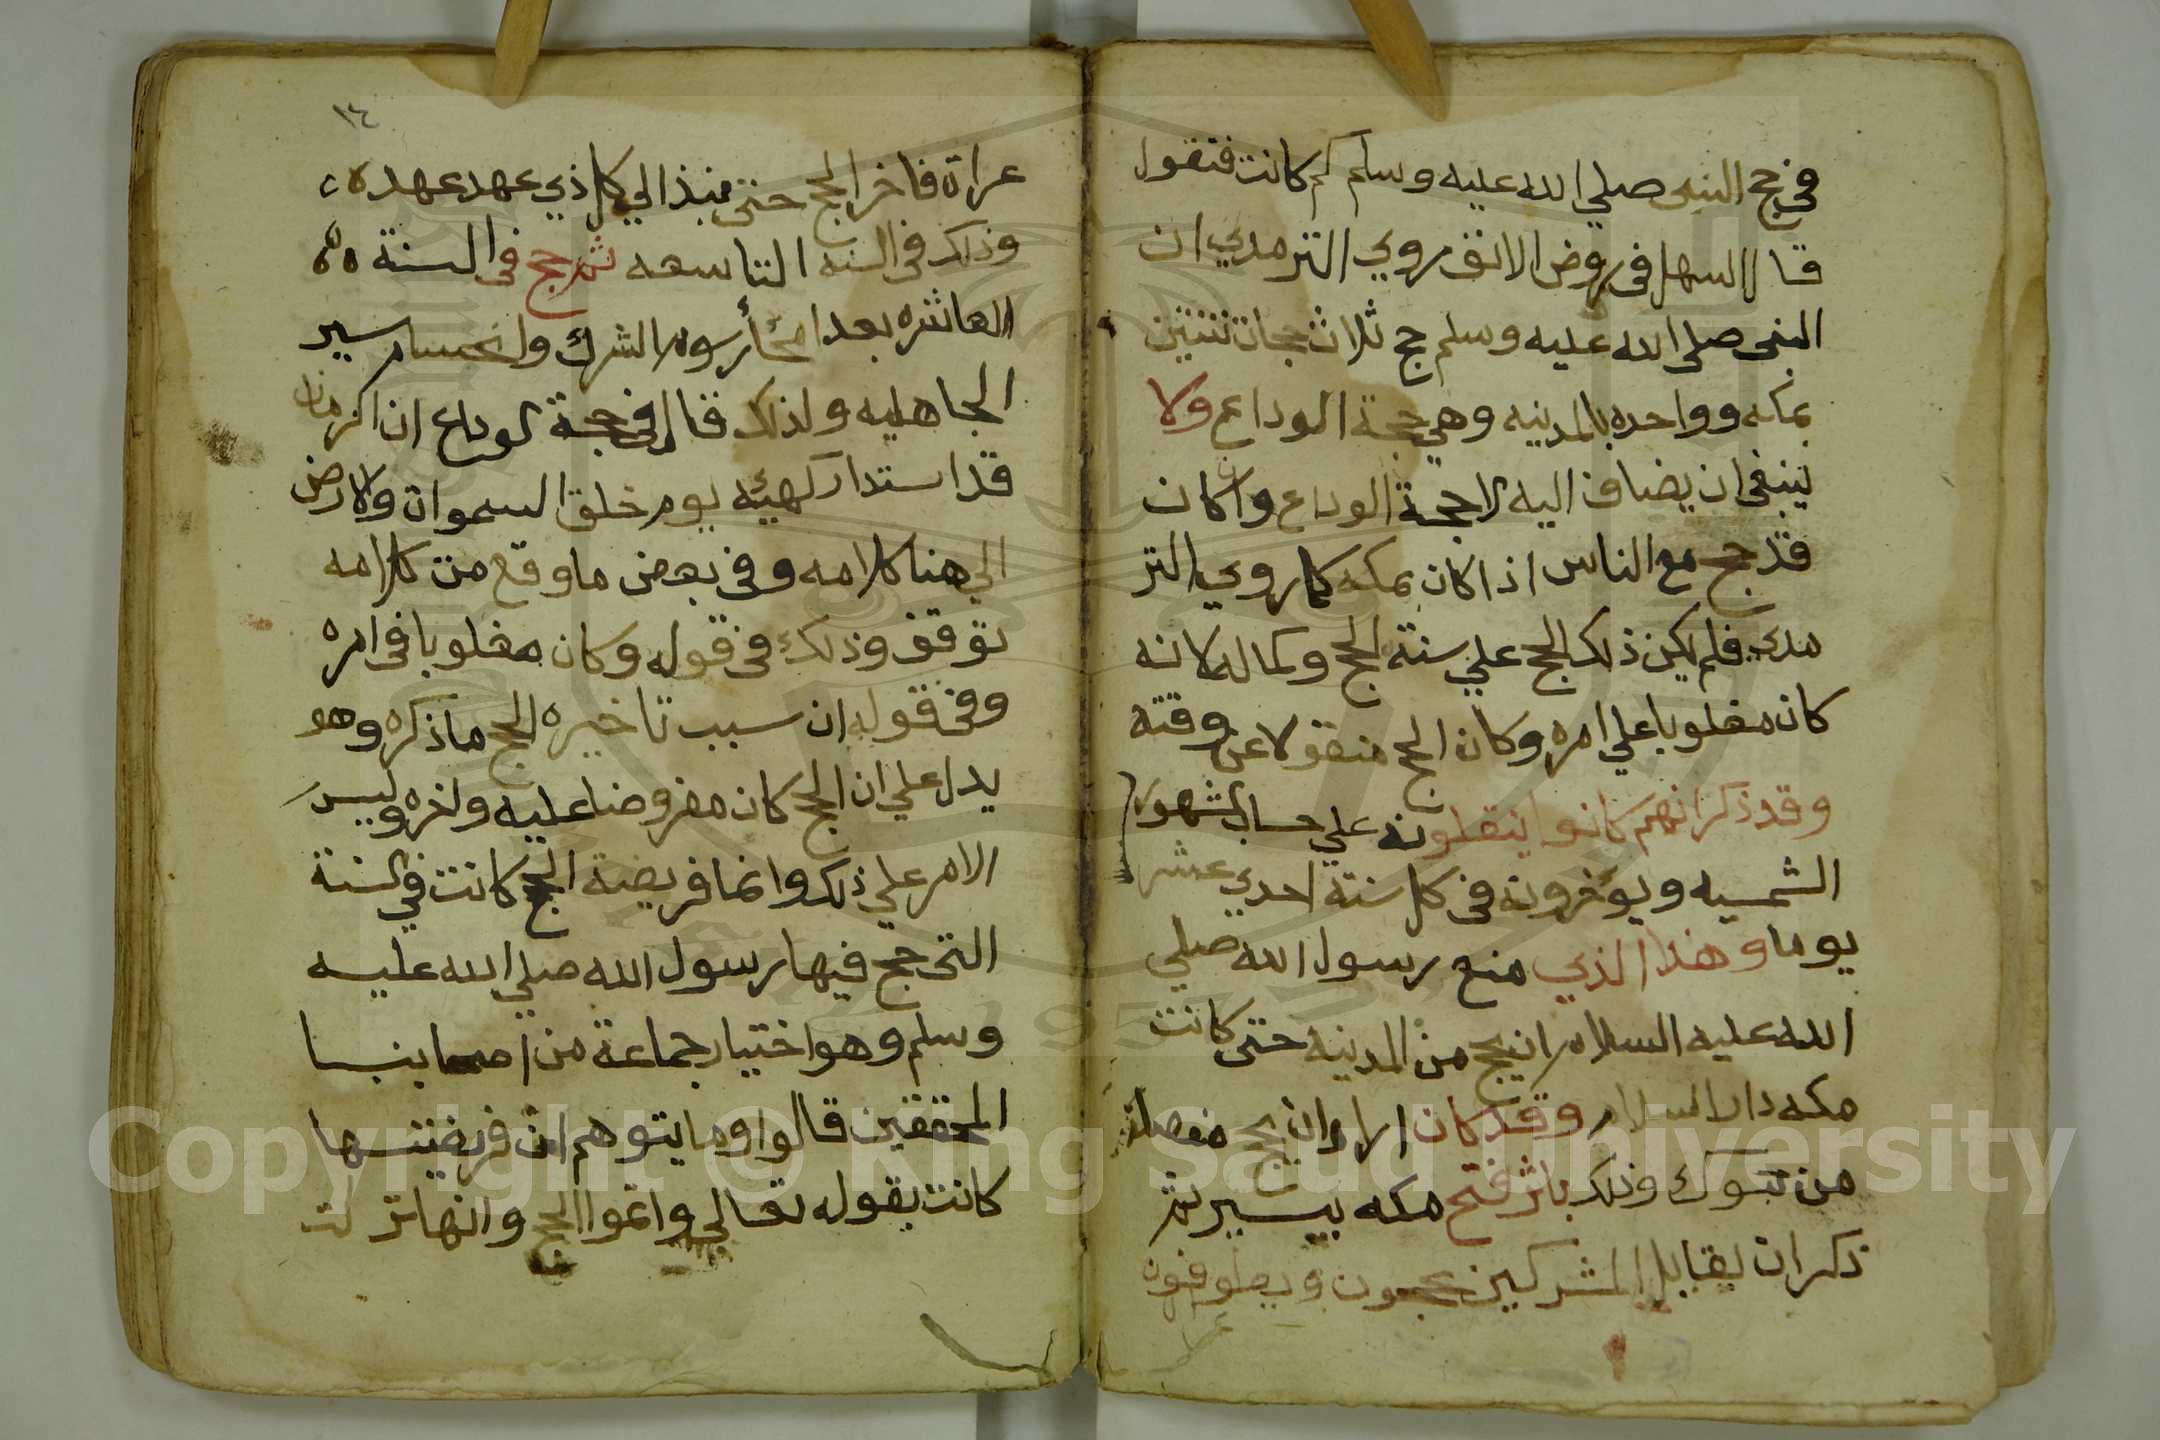 في حج النبي صلي الله عليه وسلم كم كانت فنقول
قال السهل في روض الانف روي الترمدي ان
النبي صلي الله عليه وسلم حج ثلاث حجات ثنتين
بمكه وواحده بالمدينه وهي حجة الوداع ولا
ينبغي ان يضاف اليه الا حجة الوداع وان كان
قد حج مع الناس اذا كان بمكه كما روي التر
مدي فلم يكن ذلك الحج علي سنة الحج وكماله لانه
كان مغلوبا علي امره وكان الحج منقولا عن وقته
وقد ذكر انهم كانوا ينقلونه علي حساب الشهور
الشمسيه ويوخرونه في كل سنة احدي عشر
يوما وهذا الذي منع رسول الله صلي
الله عليه السلام ان يحج من المدينة حتى كانت
مكه دار السلام وقد كان اراد ان يحج
من تبوك وذلك باثر فتح مكه بيسير ثم
ذكر ان بقايا المشركين يحجون ويطوفون
١٤
عراة فاخر الحج حتى نبذ الي كل ذي عهد عهده
وذلك في السنه التاسعه ثم حج في السنة
العاشره بعد امحا رسوم الشرك وانحسام سير
الجاهليه ولذلك قال في حجة الوداع ان الزمان
قد استدار كهيئه يوم خلق السموات والارض
الي هنا كلامه وفي بعض ما وقع من كلامه
توقف وذلك في قوله وكان مغلوبا في امره
وفي قوله ان سبب تاخيره الحج ما ذكره وهو
يدل علي ان الحج كان مفروضا عليه واخره وليس
الامر علي ذلك وانما فريضة الحج كانت في السنة
التي حج فيها رسول الله صلي الله عليه
وسلم وهو اختيار جماعة من اصحابنا
المحققين قالوا وما يتوهم ان فريضيتها
كانت بقوله تعالي واتموا الحج وانها نزلت
Copyright © King Saud University